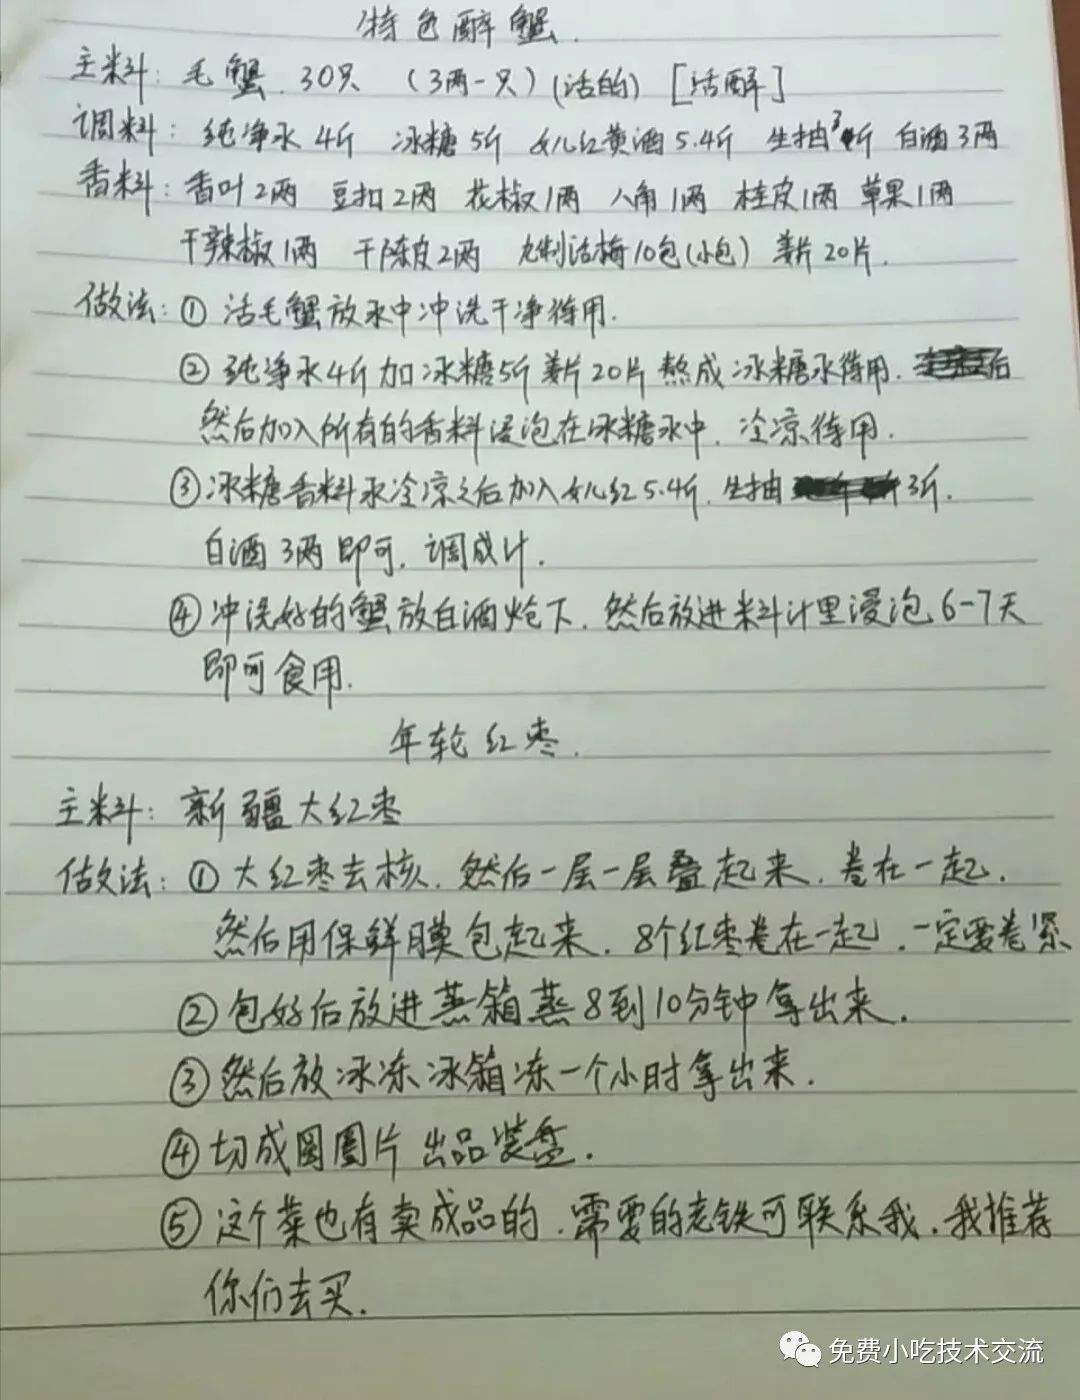 特色醉蟹.
主料: 毛蟹. 30只 (3两一只) (活的) [活醉]
调料: 纯净水4斤 冰糖5斤 女儿红黄酒5.4斤 生抽3斤 白酒3两
香料: 香叶2两 豆扣2两 花椒1两 八角1两 桂皮1两 草果1两
干辣椒1两 干陈皮2两 九制话梅10包(小包) 姜片20片.
做法: ① 活毛蟹放水中冲洗干净待用.
② 纯净水4斤加冰糖5斤姜片20片熬成冰糖水待用. 后
然后加入所有的香料浸泡在冰糖水中. 冷凉待用.
③ 冰糖香料水冷凉之后加入女儿红5.4斤. 生抽 3斤.
白酒3两即可. 调成汁.
④ 冲洗好的蟹放白酒炝下. 然后放进料汁里浸泡6-7天
即可食用.
年轮红枣.
主料: 新疆大红枣
做法: ① 大红枣去核. 然后一层一层叠起来. 卷在一起.
然后用保鲜膜包起来. 8个红枣卷在一起. 一定要卷紧
② 包好后放进蒸箱蒸8到10分钟拿出来.
③ 然后放冰冻冰箱冻一个小时拿出来.
④ 切成圆圈片出品装盘.
⑤ 这个菜也有卖成品的. 需要的老铁可联系我. 我推荐
你们去买.
免费小吃技术交流